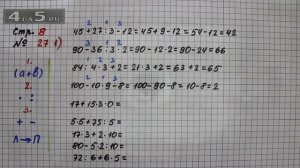 4da5.ru
Стр. 8
№ 27 1)
1.
(а+в)
2.
· :
3.
+ -
Л → П
2 1 3
45+27:3-12=45+9-12=54-12=42
3 1 2
90-36:3·2=90-12·2=90-24=66
1 2 3
84:4·3+2=21·3+2=63+2=65
100-10·9-8=100-90-8=10-8=2
17+15:3·0=
5·5+75:5=
17·3+2·10=
80-5·2·10=
72:6+6·5=